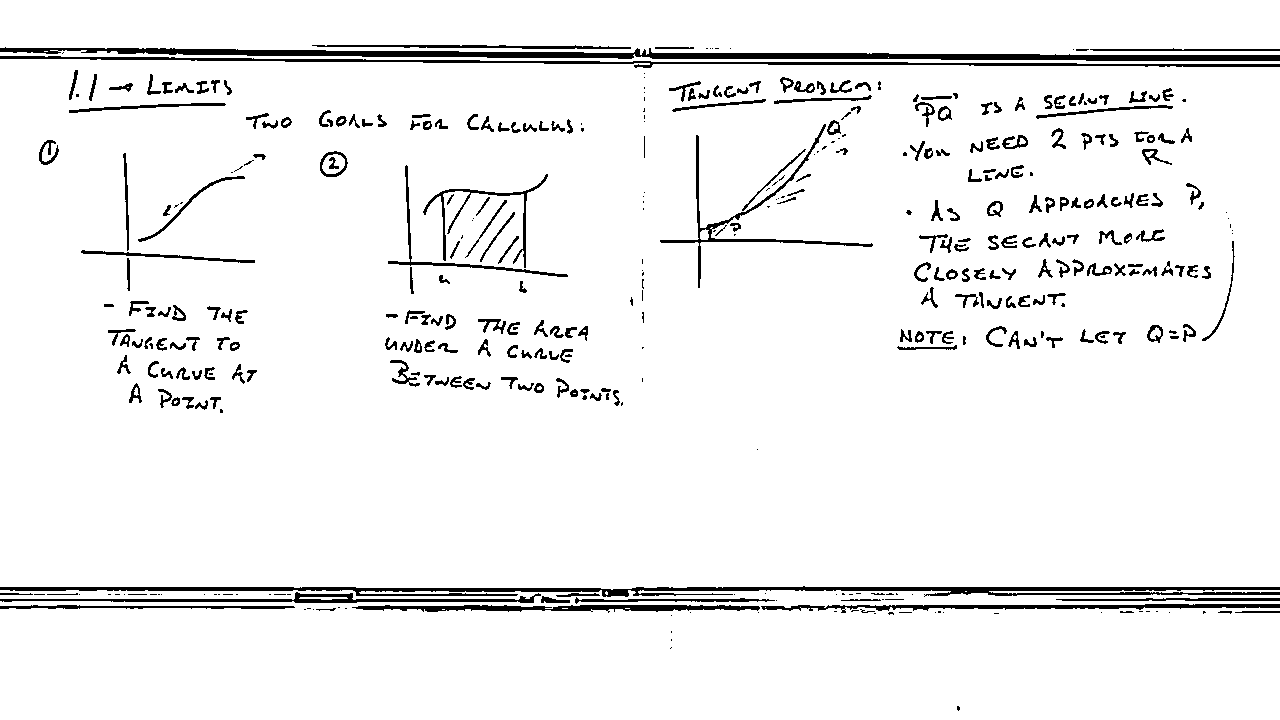 1.1 → LIMITS
TWO GOALS FOR CALCULUS:
①
②
a b
- FIND THE
TANGENT TO
A CURVE AT
A POINT.
- FIND THE AREA
UNDER A CURVE
BETWEEN TWO POINTS.
TANGENT PROBLEM:
Q
P
"PQ" IS A SECANT LINE.
• YOU NEED 2 PTS FOR A
LINE.
• AS Q APPROACHES P,
THE SECANT MORE
CLOSELY APPROXIMATES
A TANGENT.
NOTE: CAN'T LET Q=P